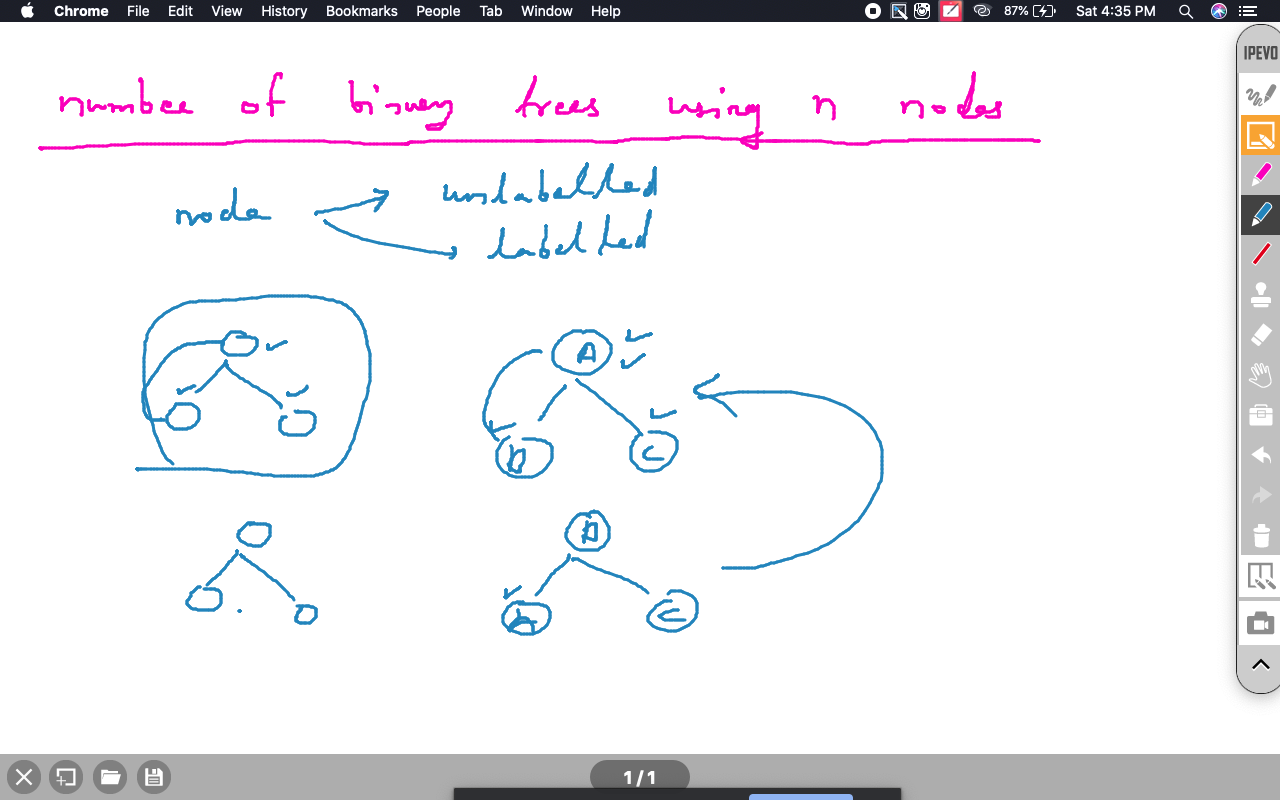 Chrome File Edit View History Bookmarks People Tab Window Help 87% Sat 4:35 PM
IPEVO
number of binary trees using n nodes
node unlabelled
labelled
A
B C
B
A C
1/1